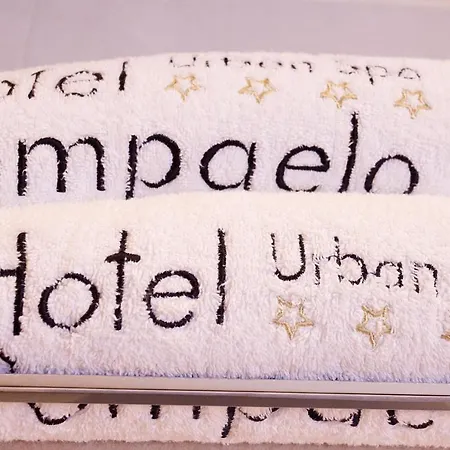 otel Urban Spa
mpaelo
Hotel Urban